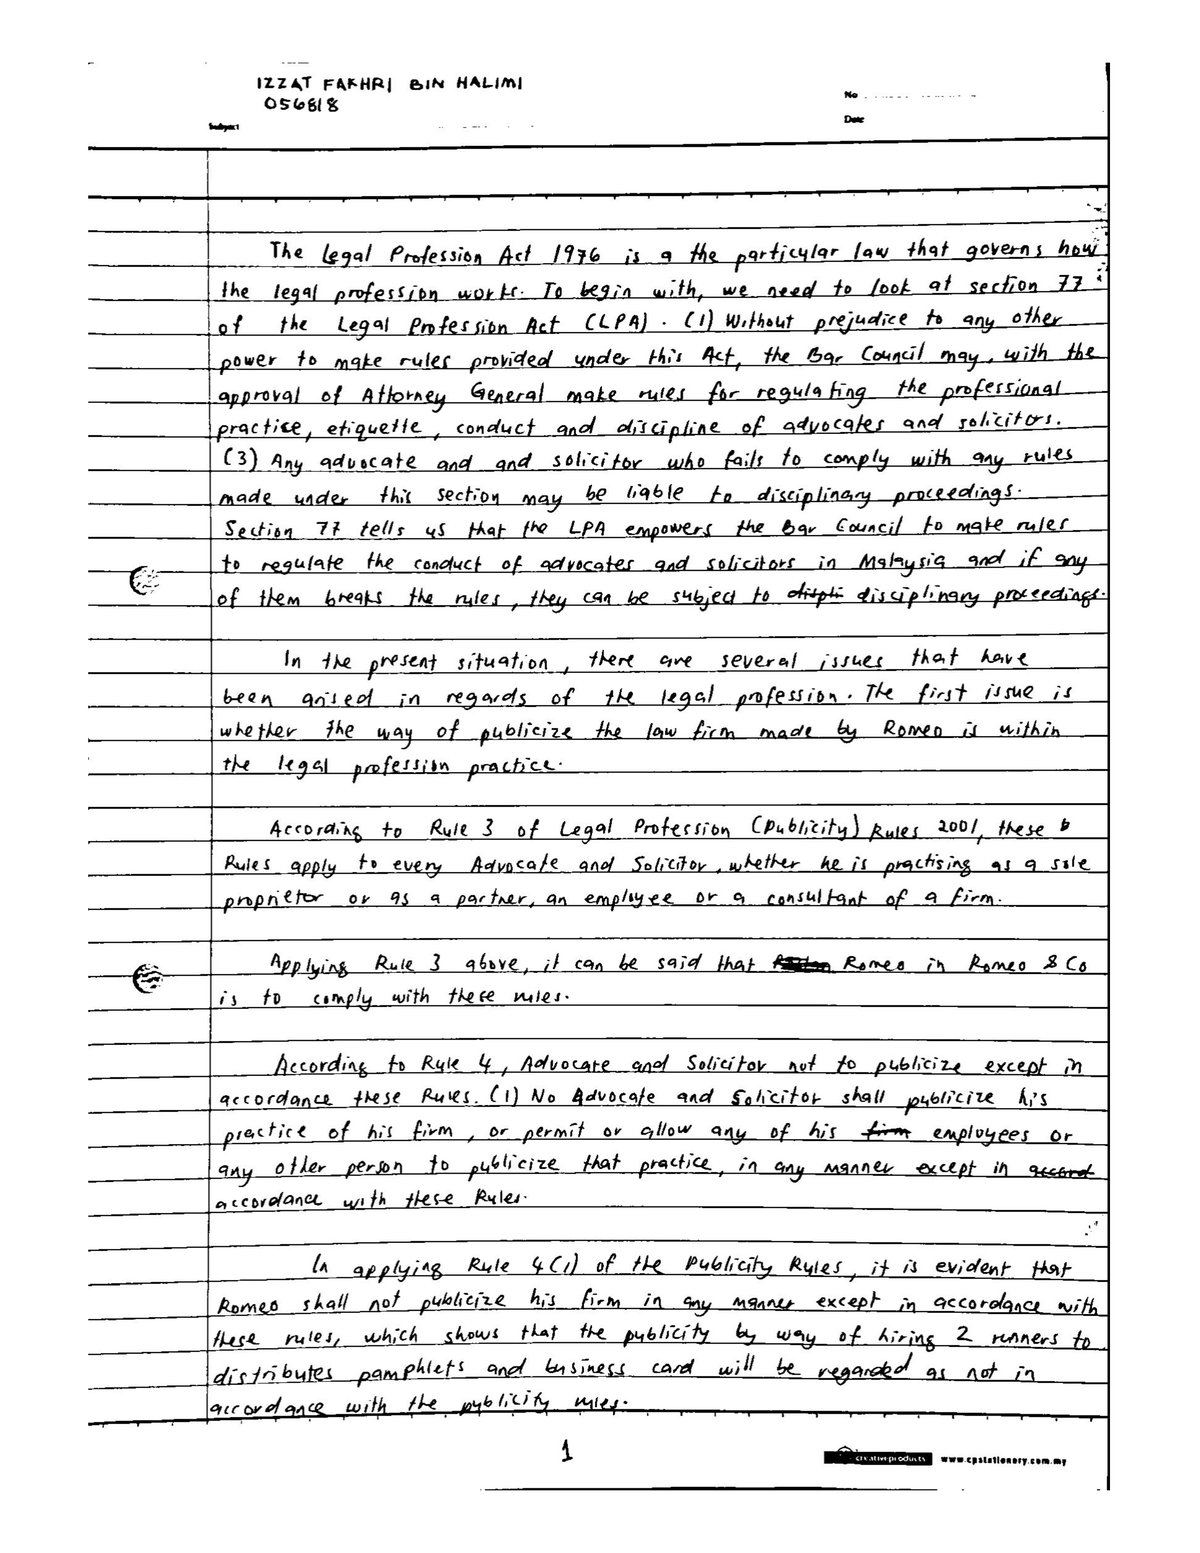 IZZAT FAKHRI BIN HALIMI
056818
No
Subject
Date
The Legal Profession Act 1976 is a the particular law that governs how
the legal profession works. To begin with, we need to look at section 77
of the Legal Profession Act (LPA). (1) Without prejudice to any other
power to make rules provided under this Act, the Bar Council may, with the
approval of Attorney General make rules for regulating the professional
practice, etiquette, conduct and discipline of advocates and solicitors.
(3) Any advocate and and solicitor who fails to comply with any rules
made under this section may be liable to disciplinary proceedings.
Section 77 tells us that the LPA empowers the Bar Council to make rules
to regulate the conduct of advocates and solicitors in Malaysia and if any
of them breaks the rules, they can be subject to displi disciplinary proceedings.
In the present situation, there are several issues that have
been arised in regards of the legal profession. The first issue is
whether the way of publicize the law firm made by Romeo is within
the legal profession practice.
According to Rule 3 of Legal Profession (Publicity) Rules 2001, these
Rules apply to every Advocate and Solicitor, whether he is practising as a sole
proprietor or as a partner, an employee or a consultant of a firm.
Applying Rule 3 above, it can be said that Romeo in Romeo & Co
is to comply with these rules.
According to Rule 4, Advocate and Solicitor not to publicize except in
accordance these Rules. (1) No Advocate and Solicitor shall publicize his
practice of his firm, or permit or allow any of his firm employees or
any other person to publicize that practice, in any manner except in accord
accordance with these Rules.
In applying Rule 4(1) of the Publicity Rules, it is evident that
Romeo shall not publicize his firm in any manner except in accordance with
these rules, which shows that the publicity by way of hiring 2 runners to
distributes pamphlets and business card will be regarded as not in
accordance with the publicity rules.
1
creative products www.cpstationery.com.my